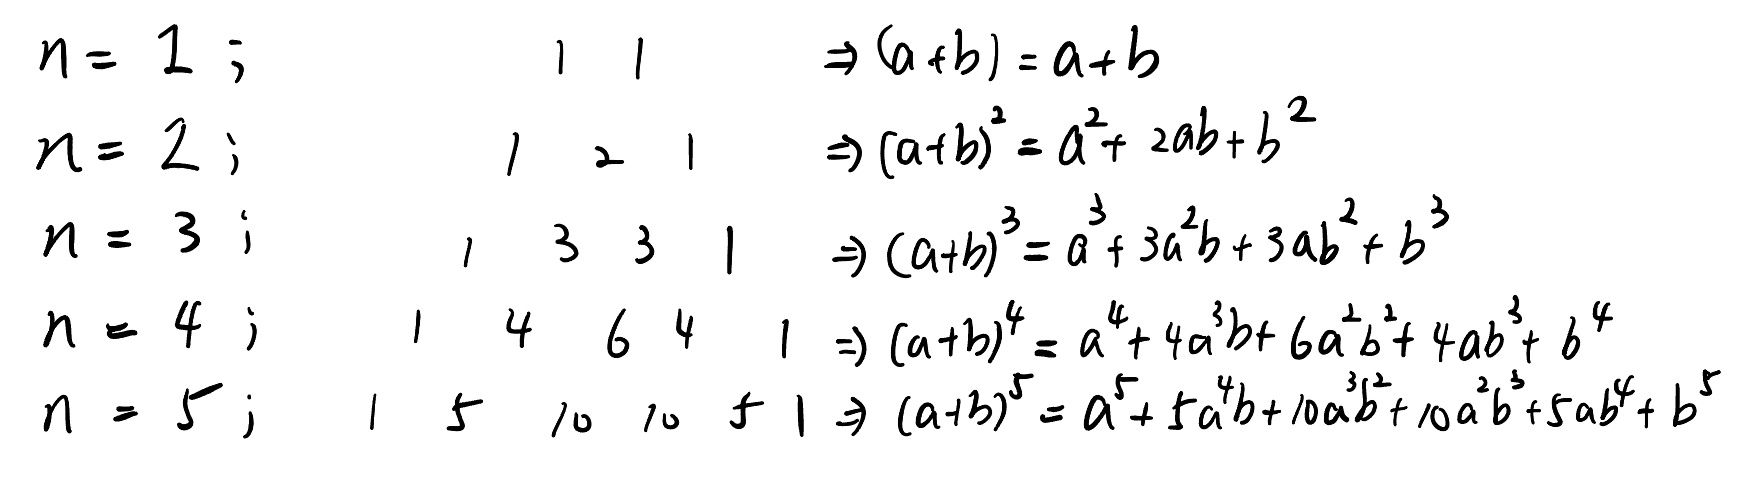 n = 1 ; 1 1 ⇒ (a+b) = a+b
n = 2 ; 1 2 1 ⇒ (a+b)² = a² + 2ab + b²
n = 3 ; 1 3 3 1 ⇒ (a+b)³ = a³ + 3a²b + 3ab² + b³
n = 4 ; 1 4 6 4 1 ⇒ (a+b)⁴ = a⁴ + 4a³b + 6a²b² + 4ab³ + b⁴
n = 5 ; 1 5 10 10 5 1 ⇒ (a+b)⁵ = a⁵ + 5a⁴b + 10a³b² + 10a²b³ + 5ab⁴ + b⁵